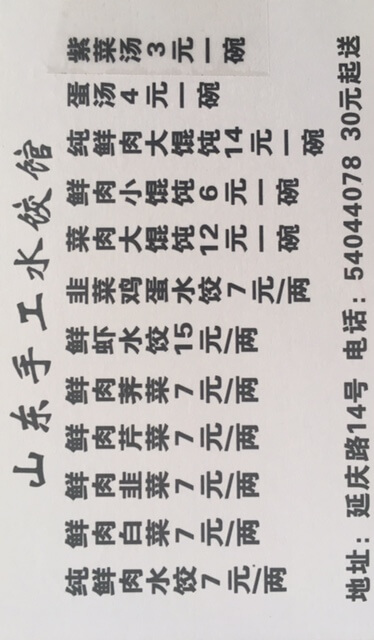 山东手工水饺馆
纯鲜肉水饺7元/两
鲜肉白菜7元/两
鲜肉韭菜7元/两
鲜肉芹菜7元/两
鲜肉荠菜7元/两
鲜虾水饺15元/两
韭菜鸡蛋水饺7元/两
菜肉大馄饨12元一碗
鲜肉小馄饨6元一碗
纯鲜肉大馄饨14元一碗
蛋汤4元一碗
紫菜汤3元一碗
地址：延庆路14号 电话：54044078 30元起送